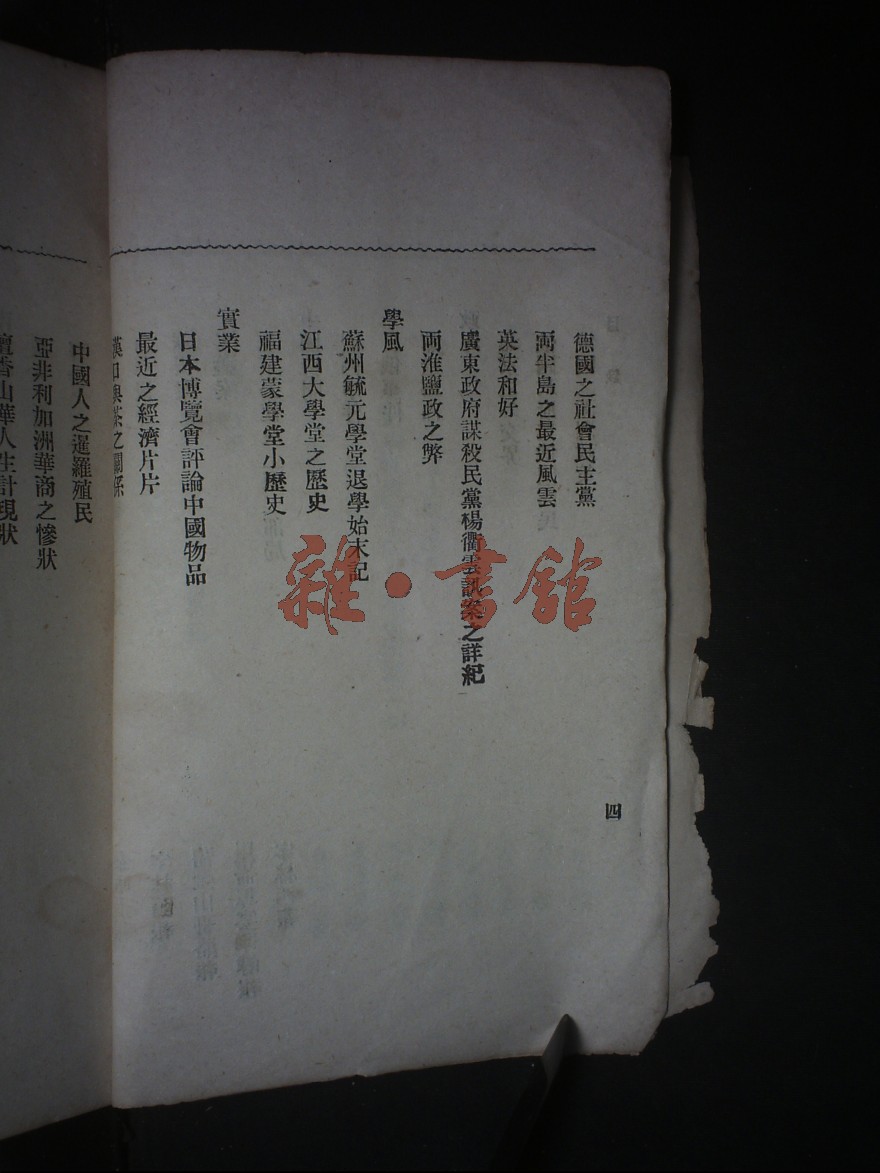 德國之社會民主黨
両半島之最近風雲
英法和好
廣東政府謀殺民黨楊衢雲訊案之詳紀
両淮鹽政之弊
學風
蘇州毓元學堂退學始末記
江西大學堂之歷史
福建蒙學堂小歷史
實業
日本博覽會評論中國物品
最近之經濟片片
漢口與茶之關係
中國人之暹羅殖民
亞非利加洲華商之慘狀
檀香山華人生計現狀
四
雜·書館